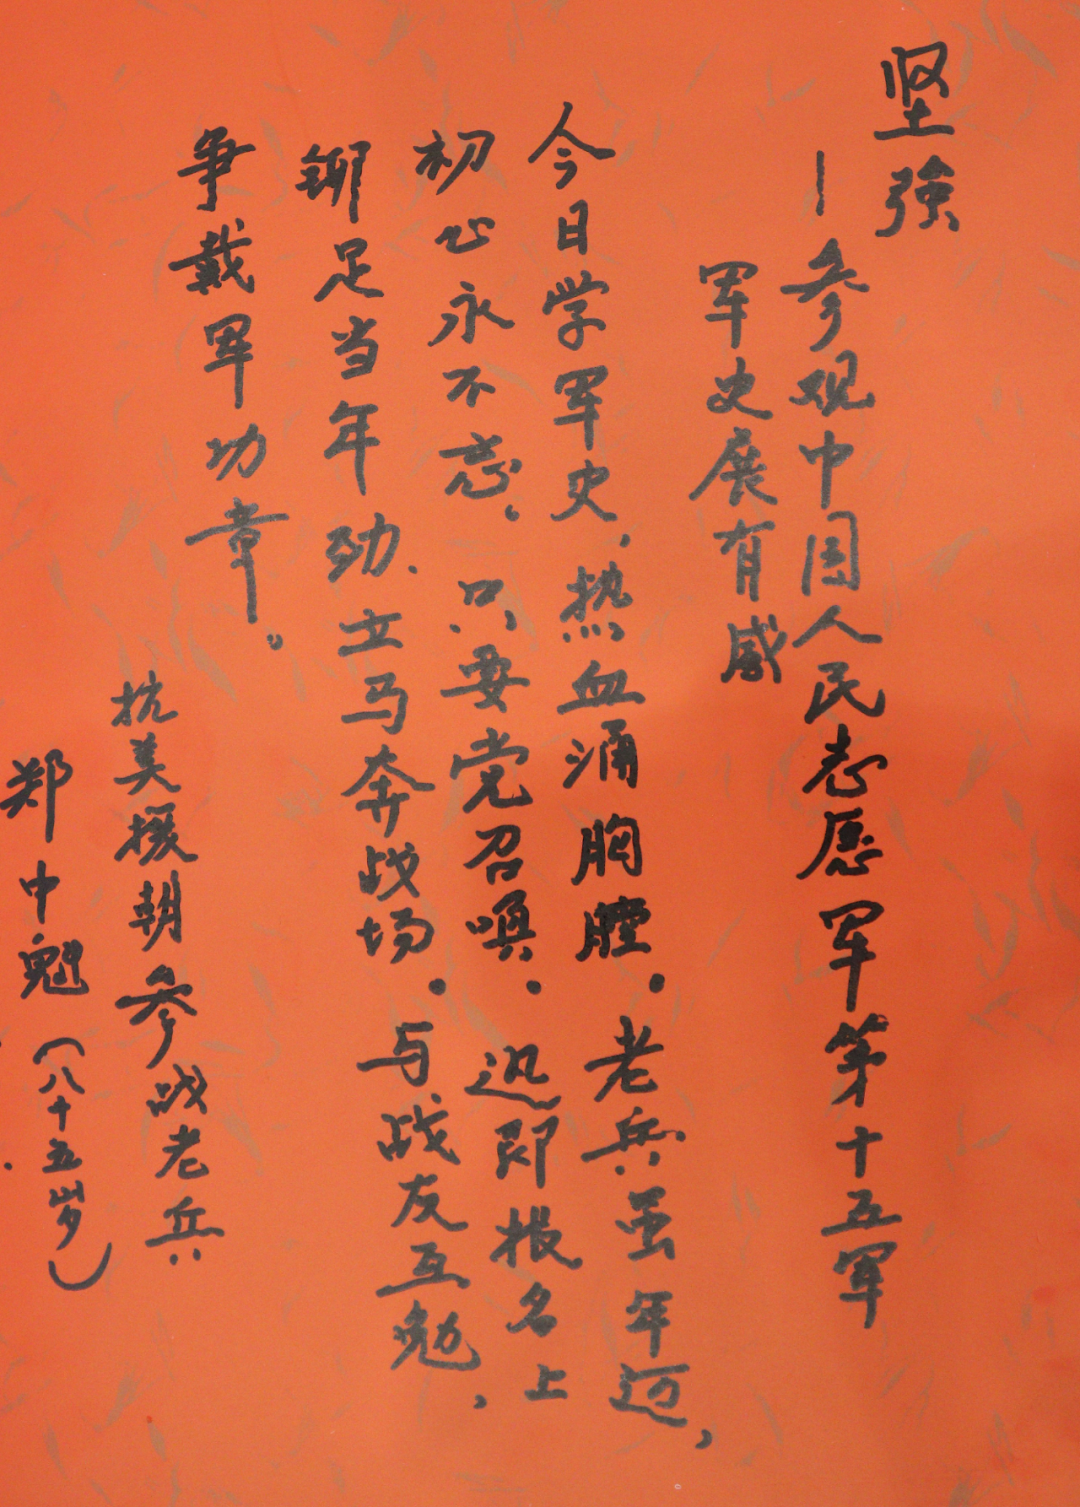 坚強
—参观中国人民志愿军第十五军
军史展有感
今日学军史,热血涌胸腔.老兵虽年迈,
初心永不忘。只要党召唤.迅即报名上
铆足当年劲.立马奔战场.与战友互勉,
争戴军功章。
抗美援朝参战老兵
郑中魁(八十五岁)